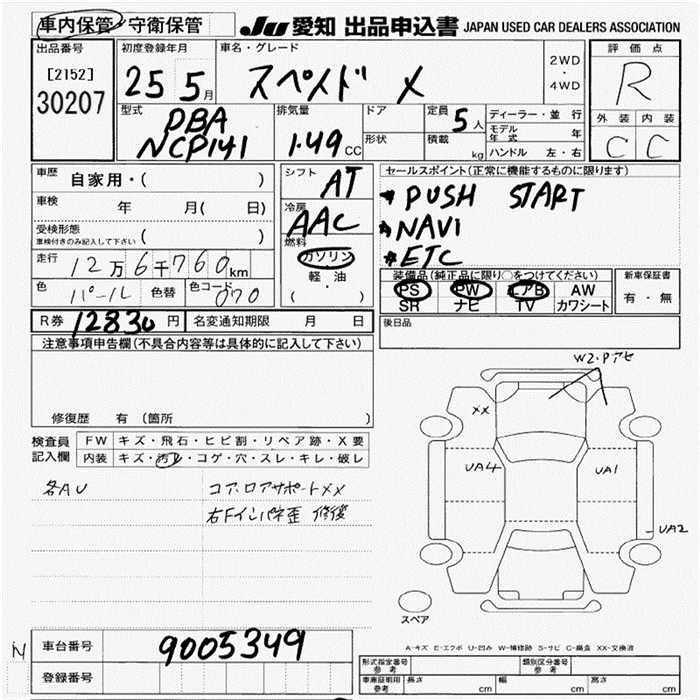 車内保管・守衛保管
JU 愛知 出品申込書 JAPAN USED CAR DEALERS ASSOCIATION
出品番号
[2152]
30207
初度登録年月
25 5月
車名・グレード
スペイド X
2WD
・
4WD
評価点
R
外装 内装
C C
型式
DBA
NCP141
排気量
1.49 CC
ドア
形状
定員
5人
積載
kg
ディーラー・並行
モデル年式 年
ハンドル 左・右
車歴
自家用・( )
車検
年 月( 日)
受検形態
車検付きのみ記入して下さい ( )
走行
12万6千760km
色
パール
色替
色コード
070
シフト
AT
冷房
AAC
燃料
ガソリン
軽・油
( )
セールスポイント(正常に機能するものに限ります)
* PUSH START
* NAVI
* ETC
装備品(純正品に限り○をつけてください)
PS PW エアB AW
SR ナビ TV カワシート
新車保証書
有・無
R券 12830 円
名変通知期限 月 日
後日品
注意事項申告欄(不具合内容等は具体的に記入して下さい)
修復歴 有 (箇所 )
検査員
記入欄
FW キズ・飛石・ヒビ割・リペア跡・X要
内装 キズ・汚レ・コゲ・穴・スレ・キレ・破レ
各AU
コア.ロアサポートXX
右Fインパネ歪 修復
W2・Pアセ
XX
UA4
UA1
UA2
スペア
A-キズ E-エクボ U-凹み W-補修跡 S-サビ C-腐食 XX-交換済
N
車台番号
9005349
登録番号
形式指定番号
参考
類別区分番号
参考
車庫証明用
参考
長さ cm 幅 cm 高さ cm